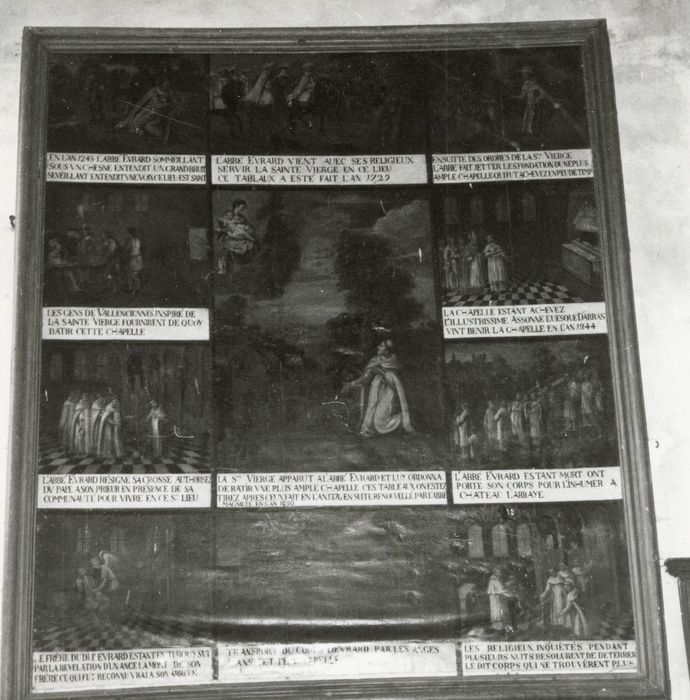 EN L'AN 1243 L'ABBÉ EVRARD SOMMEILLANT
SOUS UN CHESNE ENTENDIT UN GRAND BRUIT
SEVEILLANT ENTENDIT UNE VOIX CE LIEU EST SANT
L'ABBÉ EVRARD VIENT AUEC SES RELIGIEUX
SERVIR LA SAINTE VIERGE EN CE LIEU
CE TABLAUX A ESTÉ FAIT L'AN 1729
ENSUITTE DES ORDRES DE LA Ste VIERGE
L'ABBE FAIT JETTER LES FONDATION DUNE PLUS
AMPLE CHAPELLE QUI FUT ACHEVEZ EN PEU DE TEMP
LES GENS DE VALLENCIENNES INSPIRÉ DE
LA SAINTE VIERGE FOURNIRENT DE QUOY
BATIR CETTE CHAPELLE
LA CHAPELLE ESTANT ACHEVEZ
L'ILLUSTRISSIME ASSONNE EUESQUE DARRAS
VINT BENIR LA CHAPELLE EN L'AN 1244
L'ABBÉ EVRARD RESIGNE SA CROSSE AUTHORISEZ
DU PAPE A SON PRIEUR EN PRESENCE DE SA
COMMUNAUTÉ POUR VIVRE EN CE St LIEU
LA Ste VIERGE APPARUT A L'ABBÉ EVRARD ET LUY ORDONNA
DE BATIR VNE PLUS AMPLE CHAPELLE CES TABLEAUX ON ESTEZ
TIREZ APRES CEUX FAIT EN L'AN 1376 EN SUITE RENOUVELLE PAR L'ABBÉ
EN L'AN 1650
L'ABBÉ EVRARD ESTANT MORT ONT
PORTE SON CORPS POUR L'INHUMER A
CHATEAU L'ABBAYE
LE FRÈRE DU DIT EVRARD ESTANT EN
PAR LA REVELATION D'UN ANGE LA MORT DE SON
FRÈRE CE QUI FUT RECONNU VRAI A SON
TRANSPORT DU CORPS D'EVRARD PAR LES ANGES
LES RELIGIEUX INQUIÉTÉS PENDANT
PLUSIEURS NUITS RESOLURENT DE DETERRER
LE DIT CORPS QUI NE TROUVÈRENT PLUS